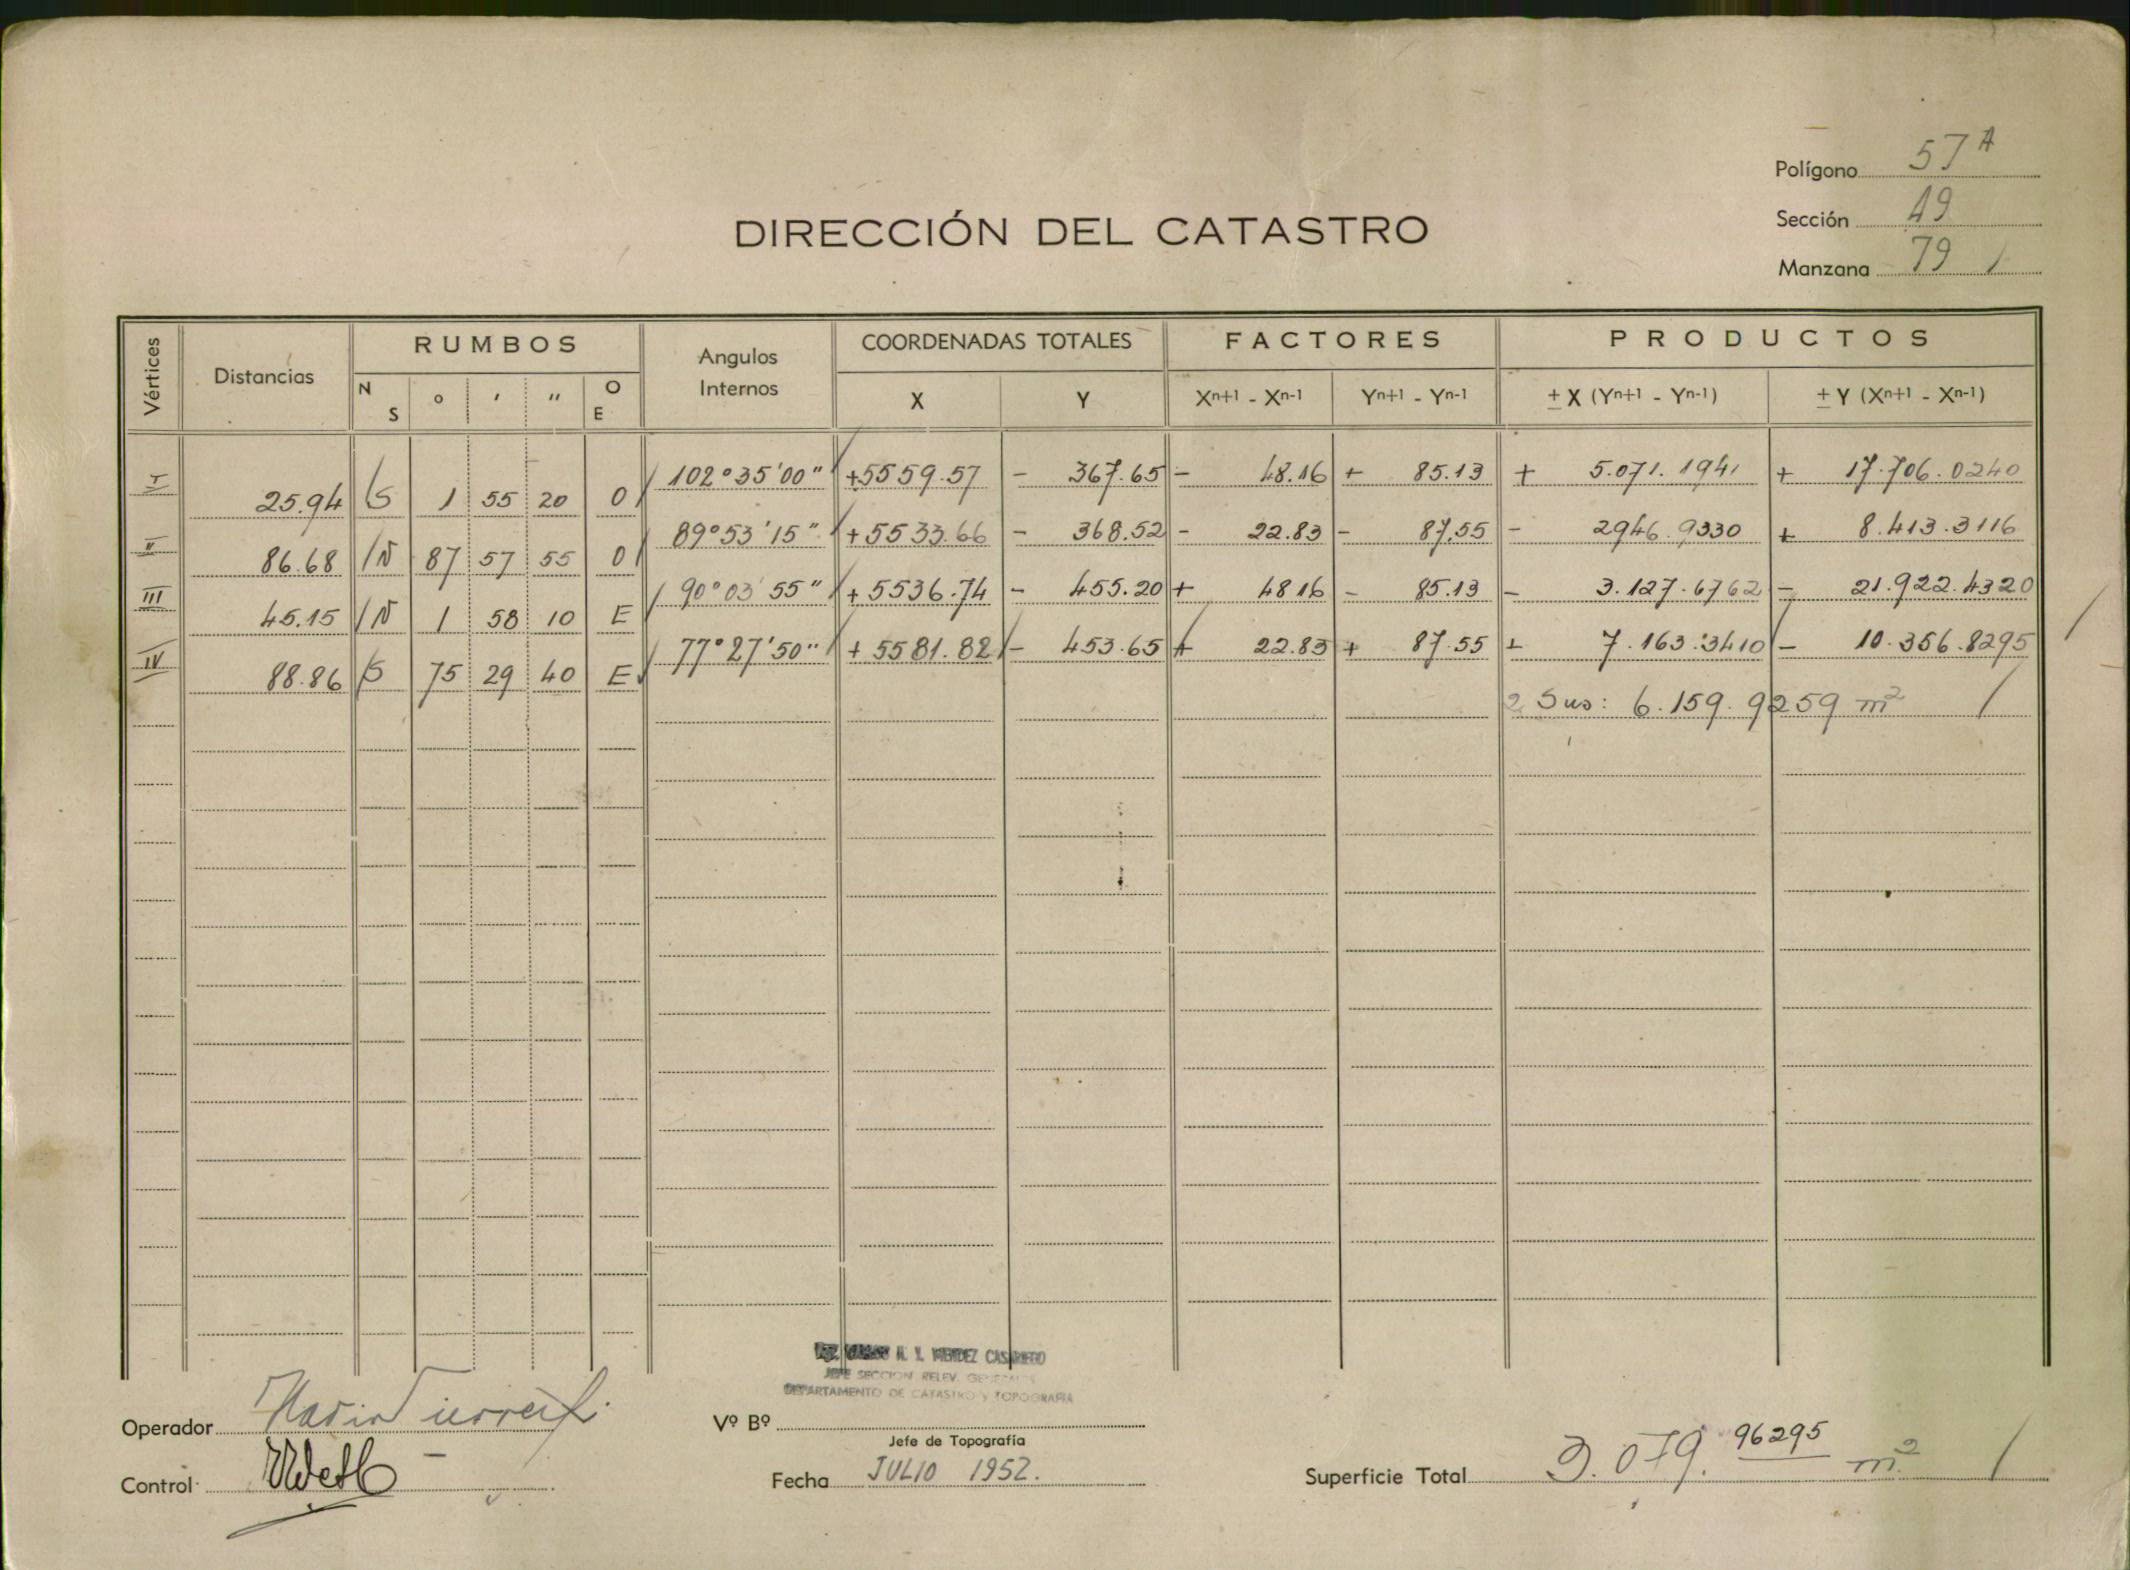 Polígono 57 A
Sección 49
Manzana 79 /
DIRECCIÓN DEL CATASTRO
Vértices Distancias RUMBOS Angulos Internos COORDENADAS TOTALES FACTORES PRODUCTOS
N S ° ' " O E X Y Xn+1 - Xn-1 Yn+1 - Yn-1 ± X (Yn+1 - Yn-1) ± Y (Xn+1 - Xn-1)
I 102°35'00" +5559.57 - 367.65 - 48.16 + 85.13 + 5.071.1941 + 17.706.0240
25.94 S 1 55 20 O
II 89°53'15" +5533.66 - 368.52 - 22.83 - 87.55 - 2946.9330 + 8.413.3116
86.68 N 87 57 55 O
III 90°03'55" +5536.74 - 455.20 + 48 16 - 85.13 - 3.127.6762 - 21.922.4320
45.15 N 1 58 10 E
IV 77°27'50" +5581.82 - 453.65 + 22.83 + 87.55 + 7.163.3410 - 10.356.8295
88.86 S 75 29 40 E
2 Sus: 6.159.9259 m² /
MENDEZ
JEFE SECCION RELEV.
DEPARTAMENTO DE CATASTRO y TOPOGRAFIA
Operador
Vº Bº
Jefe de Topografía
Control
Fecha JULIO 1952.
Superficie Total 3.079.96295 m² /